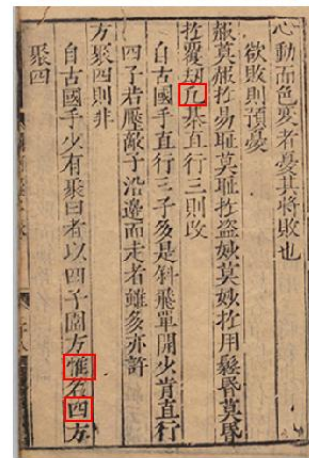 心動而色変者憂其將敗也
欲敗則預憂
赧莫赧於易耻莫耻於盜妙莫妙於用鬆昬莫昬
於覆劫凡棊直行三則改
自古國手直行三子多是斜飛單開少肯直行
四子若壓敵子沿邊而走者雖多亦許
方聚四則非
自古國手少有聚曰者以四子圍方惟名四方
聚四